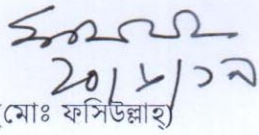 ২০/৮/১৯
(মোঃ ফসিউল্লাহ্)